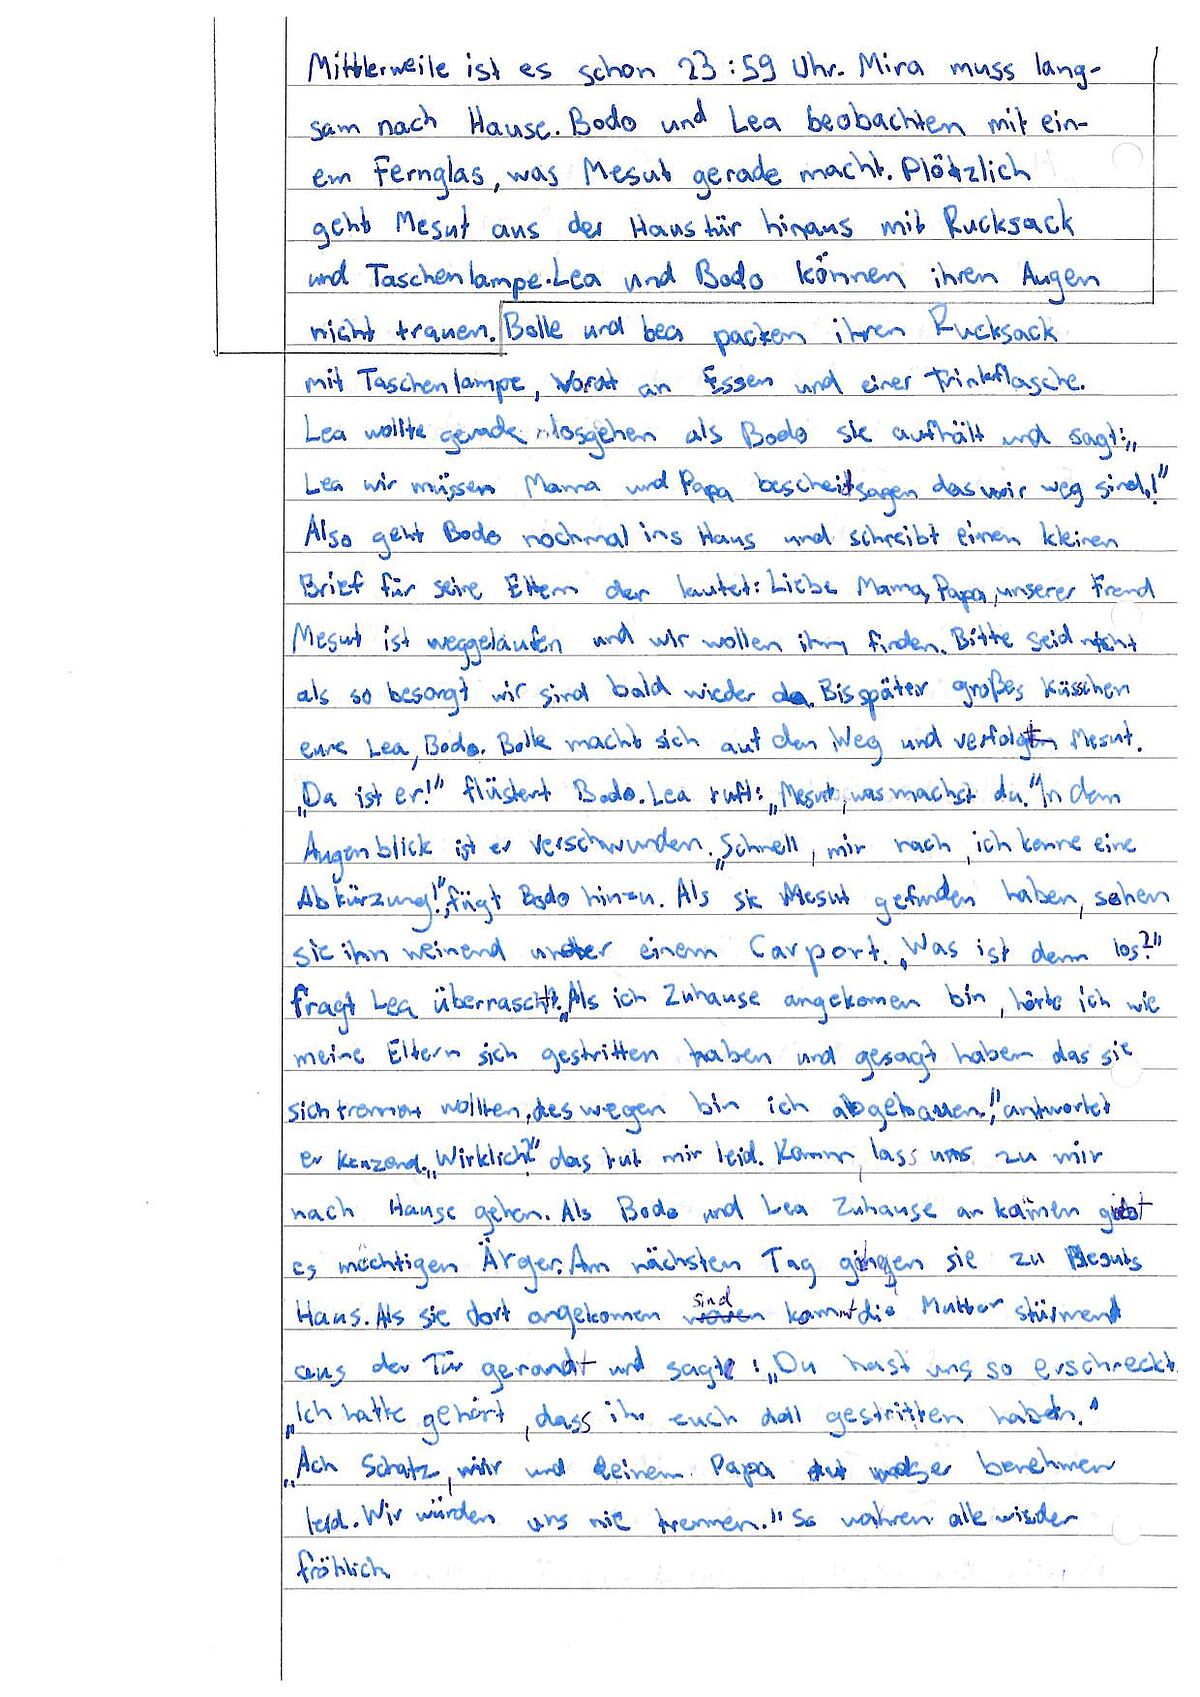 Mittlerweile ist es schon 23:59 Uhr. Mira muss lang-
sam nach Hause. Bodo und Lea beobachten mit ein-
em Fernglas, was Mesut gerade macht. Plötzlich
geht Mesut aus der Haustür hinaus mit Rucksack
und Taschenlampe. Lea und Bodo können ihren Augen
nicht trauen. Bolle und Lea packen ihren Rucksack
mit Taschenlampe, Vorat an Essen und einer Trinkflasche.
Lea wollte gerade losgehen als Bodo sie aufhält und sagt: „
Lea wir müssen Mama und Papa bescheitsagen das wir weg sind!"
Also geht Bodo nochmal ins Haus und schreibt einen kleinen
Brief für seine Eltern der lautet: Liebe Mama, Papa, unserer Freund
Mesut ist weggelaufen und wir wollen ihm finden. Bitte seid nicht
als so besorgt wir sind bald wieder da. Bis später großes Küsschen
eure Lea, Bodo. Bolle macht sich auf den Weg und verfolgt Mesut.
„Da ist er!" flüstert Bodo. Lea ruft: „Mesut, was machst du." In dem
Augenblick ist er verschwunden. „Schnell, mir nach, ich kenne eine
Abkürzung!", fügt Bodo hinzu. Als sie Mesut gefunden haben, sehen
sie ihn weinend unter einem Carport. „Was ist denn los?"
fragt Lea überrascht. „Als ich Zuhause angekomen bin, hörte ich wie
meine Eltern sich gestritten haben und gesagt haben das sie
sich trennen wollten, deswegen bin ich abgehauen!", antwortet
er. „Wirklich?" das tut mir leid. Komm, lass uns zu mir
nach Hause gehen. Als Bodo und Lea Zuhause ankamen gibt
es mächtigen Ärger. Am nächsten Tag gingen sie zu Mesuts
Haus. Als sie dort angekomen sind kommt die Mutter stürmend
aus der Tür gerandt und sagt: „Du hast uns so erschreckt
„Ich hatte gehört, dass ihr euch doll gestritten habt."
„Ach Schatz, mir und deinem Papa tut unser benehmen
leid. Wir würden uns nie trennen." So wahren alle wieder
fröhlich